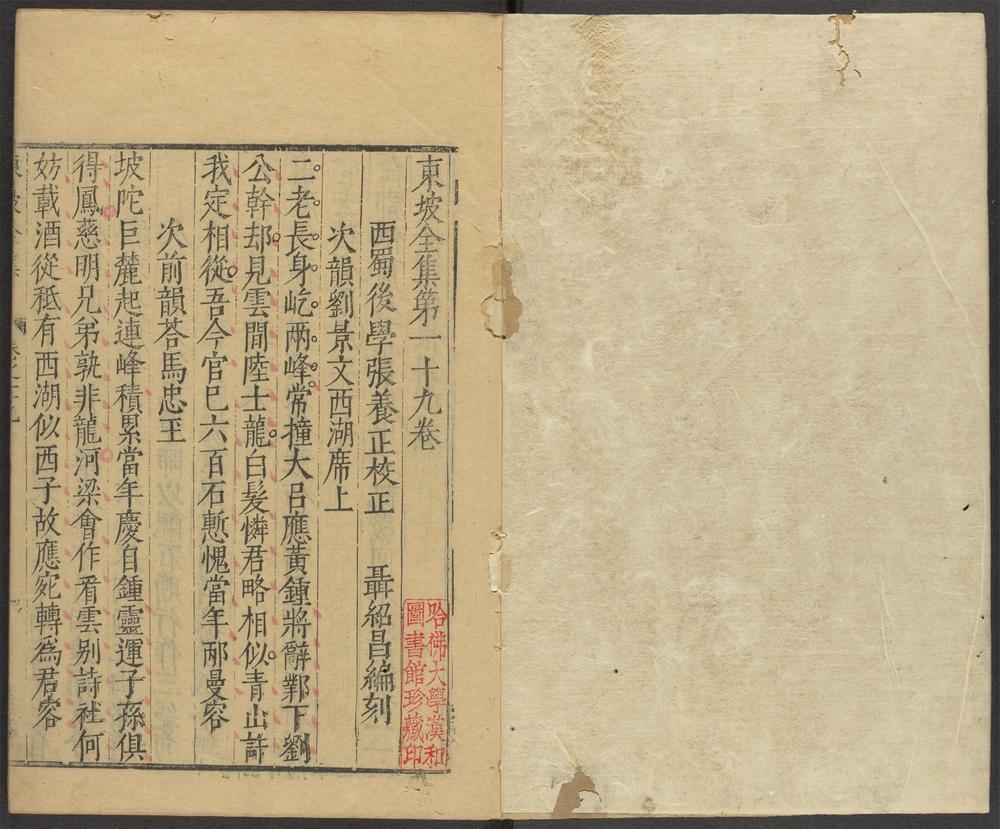 東坡全集第一十九卷
西蜀後學張養正校正　聶紹昌編刻
次韻劉景文西湖席上
二老長身屹兩峰常撞大呂應黃鍾將辭鄴下劉
公幹却見雲間陸士龍白髮憐君略相似青山許
我定相從吾今官巳六百石慙愧當年邴曼容
次前韻荅馬忠王
坡陀巨麓起連峰積累當年慶自鍾靈運子孫俱
得鳳慈明兄弟孰非龍河梁會作看雲别詩社何
妨載酒從秪有西湖似西子故應宛轉爲君容
哈佛大學漢和
圖書館珍藏印